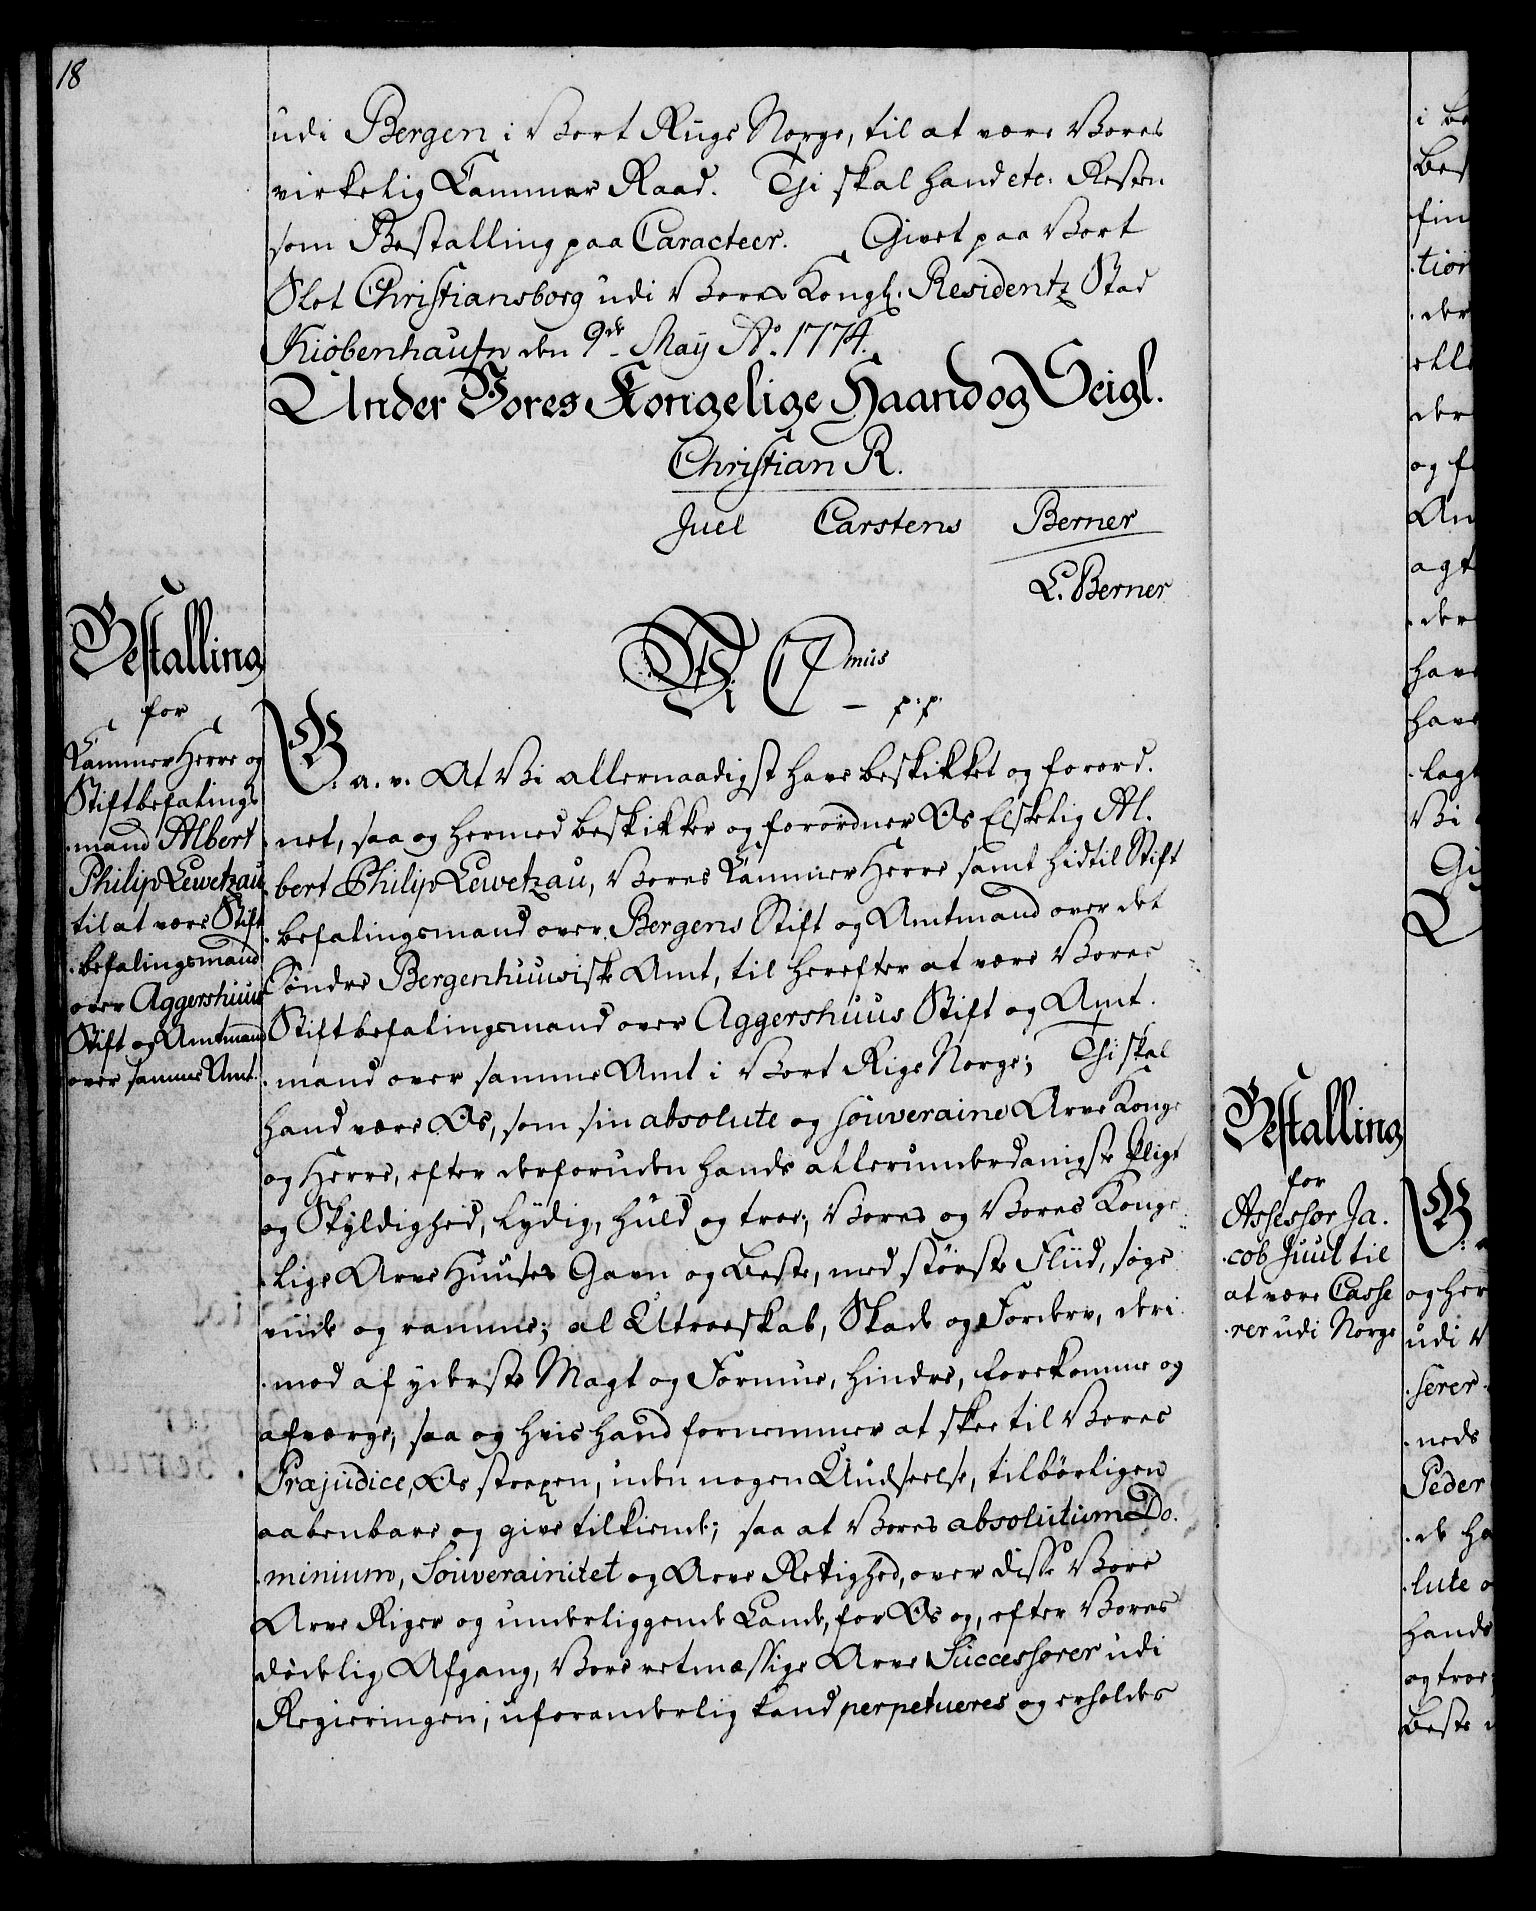 18
udi Bergen i Vort Riigs Norge, til at være Vores
virkelig Cammer Raad. Thi skal hand etc: Resten
som Bestalling paa Caracteer. Givet paa Vort
Slot Christiansborg udi Vores Kongl. Residentz Stad
Kiöbenhaufn den 9de May Ao. 1774.
Under Vores Kongelige Haand og Seigl.
Christian R.
Juel Carstens Berner
L. Berner
Bestalling
for
Cammer Herre og
Stiftbefalings
-mand Albert
Philip Lewetzau
til at være Stift
-befalingsmand
over Aggershuus
Stift og Amtmand
over samme Amt.
Wi C 7mus
p:p.
G. a. v. At Vi allernaadigst have beskikket og forord.
net, saa og hermed beskikker og forordner Os Elskelig Al.
bert Philip Lewetzau, Vores Cammer Herre samt hidtil Stift
-befalingsmand over Bergens Stift og Amtmand over det
Söndre Bergenhuusiske Amt, til herefter at være Vores
Stiftbefalingsmand over Aggershuus Stift og Amt.
-mand over samme Amt i Vort Rige Norge; Thi skal
hand være Os, som sin absolute og souveraine Arve Konge
og Herre, efter derforuden hands allerunderdanigste Pligt
og Skyldighed, lydig, huld og troe; Vores og Vores Konge
-lige Arve Huuses Gavn og beste, med störste Fliid, söge
vide og ramme; al Utroeskab, Skade og Forderv, deri
-mod af yderste Magt og Formue, hindre, forekomme og
afværge, saa og hvis hand fornemmer at skee til Vores
Præjudice, Os straxen, uden nogen Anseelse, tilbörligen
aabenbare og give tilkiende; saa at Vores absolutum Do.
-minium, Souverainitet og Arve Retighed, over disse Vore
Arve Riger og underliggende Lande, for Os og, efter Vores
dödelig Afgang, Vore retmæssige Arve Successorer udi
Regieringen, uforanderlig kand perpetueres og erholdes
Bestalling
for
Assessor Ja.
-cob Juul til
at være Casse
-rer udi Norge
i be
bes
fin
-tion
-der
elle
der
og f
An
agt
-der
have
have
-lagt
Vi
Gi
G.
og her
udi V
-serer
-neds
Peder
-de ha
-lute o
hands
og troe
beste